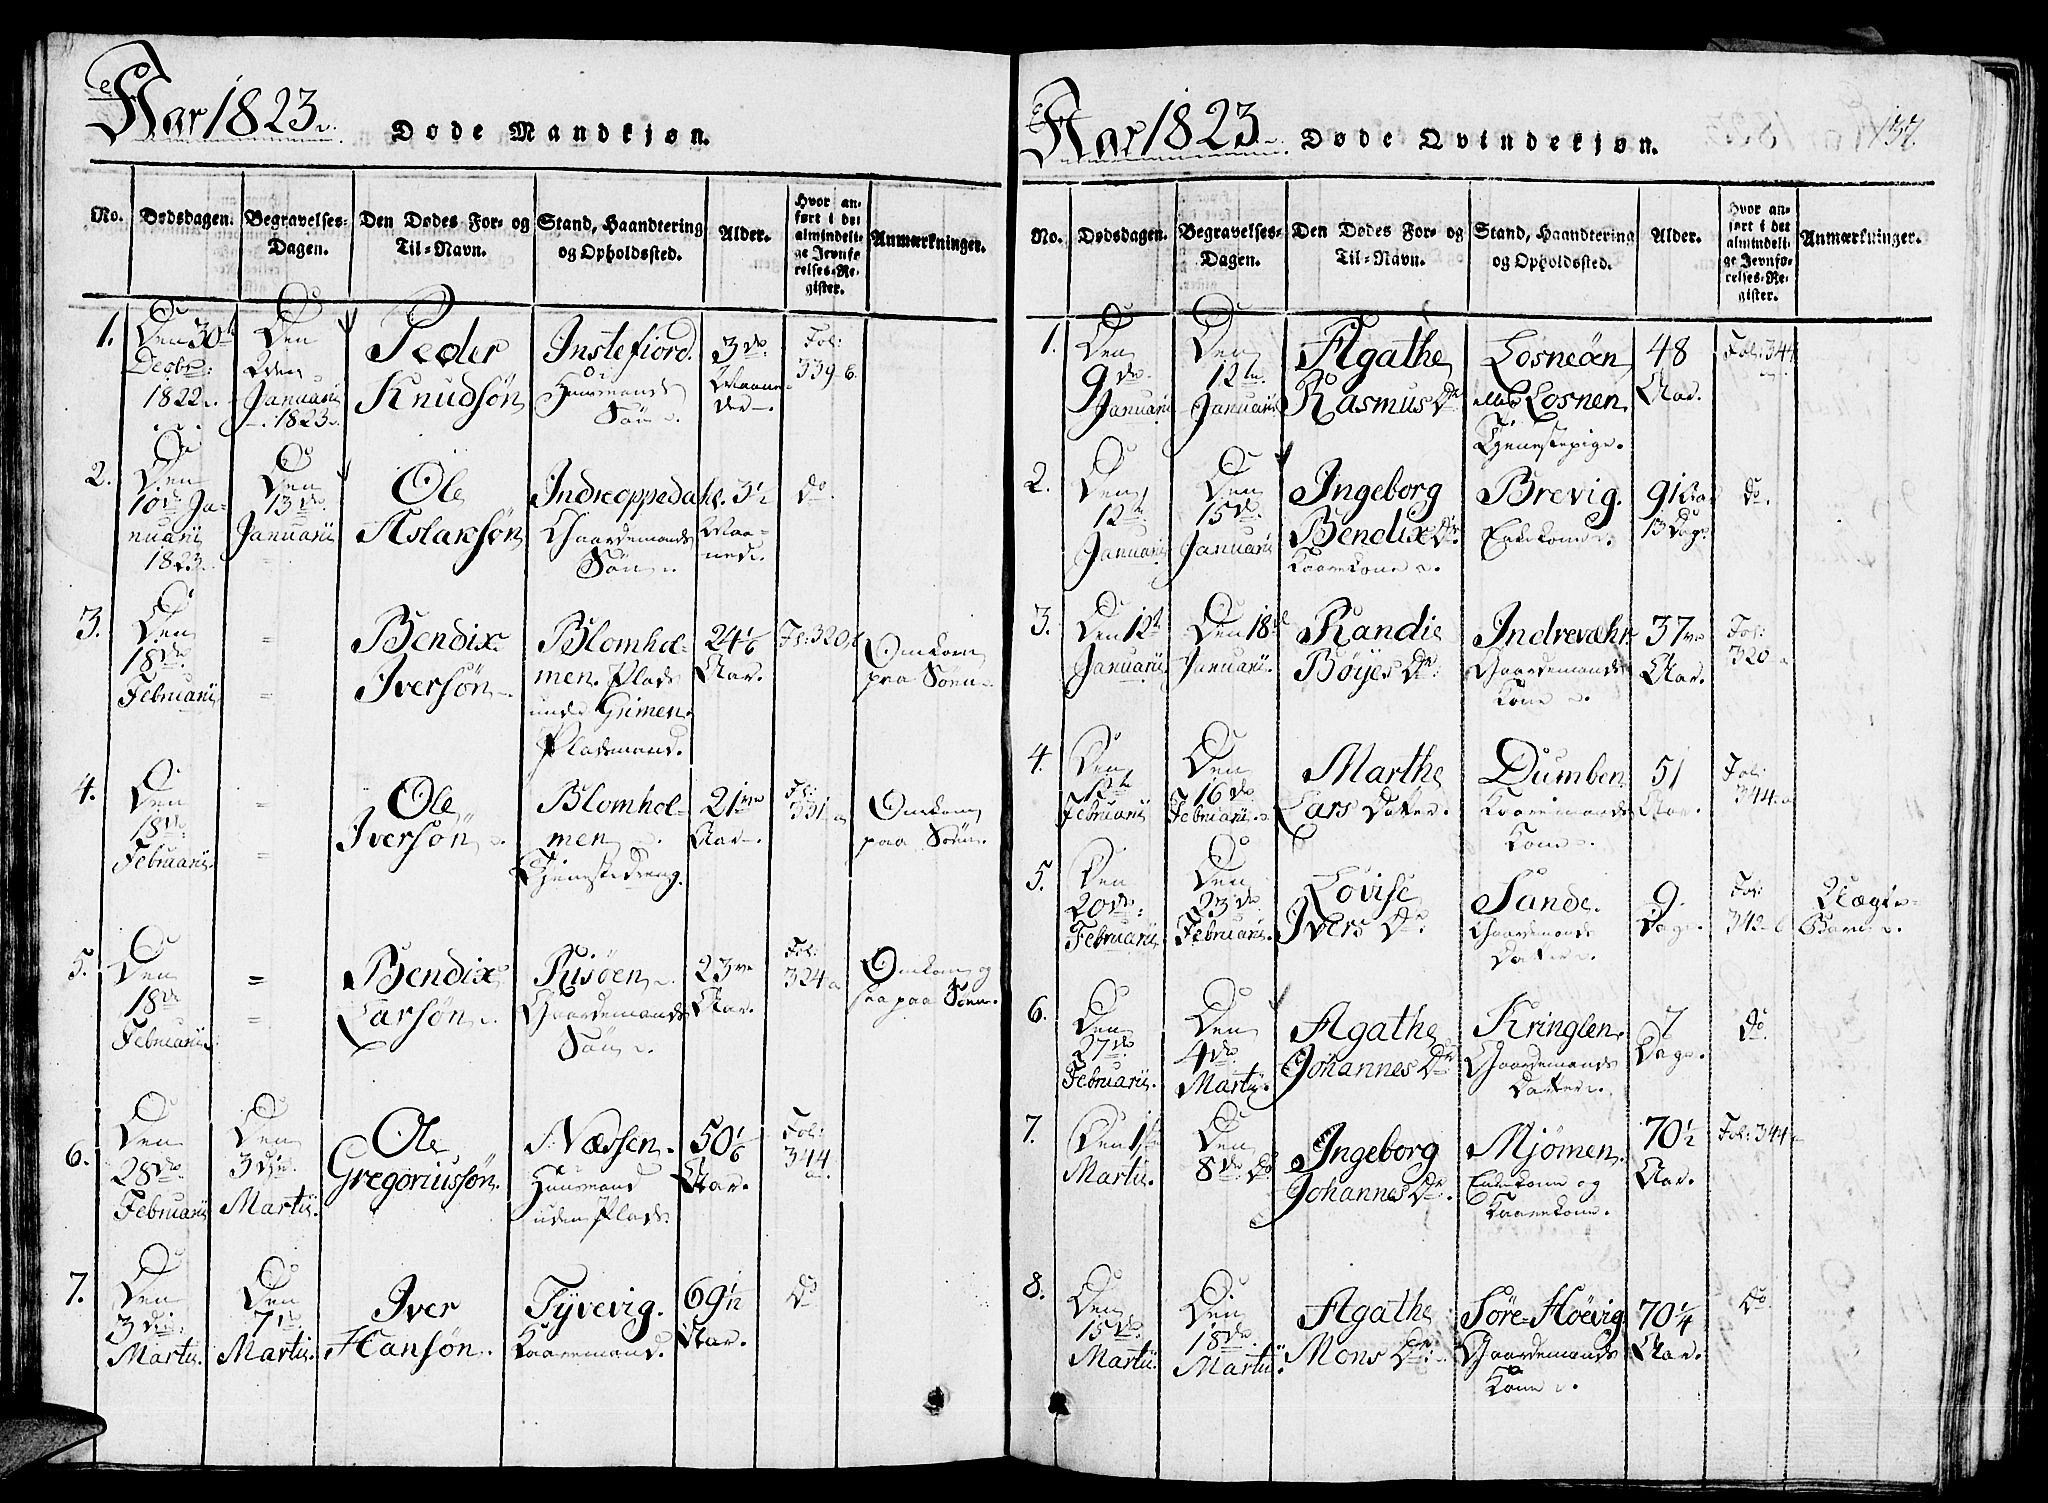 Aar 1823. Døde Mandkjøn.
No. Dødsdagen. Begravelses-Dagen. Den Dødes For- og Til-Navn. Stand, Haandtering og Opholdssted. Alder. Hvor anført i det almindelige Jevnførelses-Register. Anmærkninger.
1. Den 30te Decbr: 1822. Den Januarii 1823. Peder Knudsøn Instefiord. Huusmands Søn. 3de Maaneder. Fol: 339 b.
2. Den 10de Januarii 1823. Den 13de Januarii Ole Aslaksøn Indreoppedahl. Gaardemands Søn. 3½ Maaned. do.
3. Den 18de Februarii = Bendix Iversøn Blomholmen. Plads under Grimen. Pladsmand. 24 1/6 Aar. Fol: 320 Omkom paa Søen.
4. Den 18de Februarii = Ole Iversøn Blomholmen Tjenestedreng. 21 Aar. Fol: 331 a Omkom paa Søen.
5. Den 18de Februarii = Bendix Larsøn Risøen Gaardemands Søn. 23 Aar. Fol: 324 a Omkom og paa Søen.
6. Den 28de Februarii Den 3die Martii. Ole Gregoriussøn. Næssen. Huusmand uden Plads. 50 1/6 Aar. Fol: 344. a
7. Den 3die Martii. Den 7de Martii. Iver Hansøn. Tÿvevig. Kaaremand. 69 1/12 Aar. do
Aar 1823. Døde Qvindekjøn. 157.
No. Dødsdagen. Begravelses-Dagen. Den Dødes For- og Til-Navn. Stand, Haandtering og Opholdssted. Alder. Hvor anført i det almindelige Jevnførelses-Register. Anmærkninger.
1. Den 9de Januarii Den 12te Januarii Agathe Rasmus Dr Losneöen eller Losnen. Tjenestepige. 48 Aar. Fol: 344
2. Den 12te Januarii Den 15de Januarii Ingeborg Bendix Dr. Kaarekone. Brevig. Enkekone. 91 Aar 13 Dage do.
3. Den 12te Januarii Den 18de Januarii. Randi Bøyes Dr. Indreværk Gaardemands Kone. 37 Aar. Fol: 320 a
4. Den 12te Februarii Den 16de Februarii. Marthe Lars Datter. Dumben Kaaremands Kone. 51 Aar. Fol: 344. a
5. Den 20de Februarii. Den 23de Februarii. Lovise Ivers Dr. Sande. Gaardemands Datter. 9. Dage. Fol: 342 b Uægte Barn.
6. Den 27de Februarii. Den 4de Martii. Agathe Johannes Dr. Kringlen. Gaardemands Datter. 7 Dage. do.
7. Den 1ste Martii. Den 8de do Ingeborg Johannes Dr. Mjömen. Enkekone og Kaarekone. 70½ Aar. Fol: 344 a
8. Den 15de Martii. Den 18de Martii. Agathe Mons Dr. Söre-Höevig. Gaardemands Kone. 70¼ Aar. do.